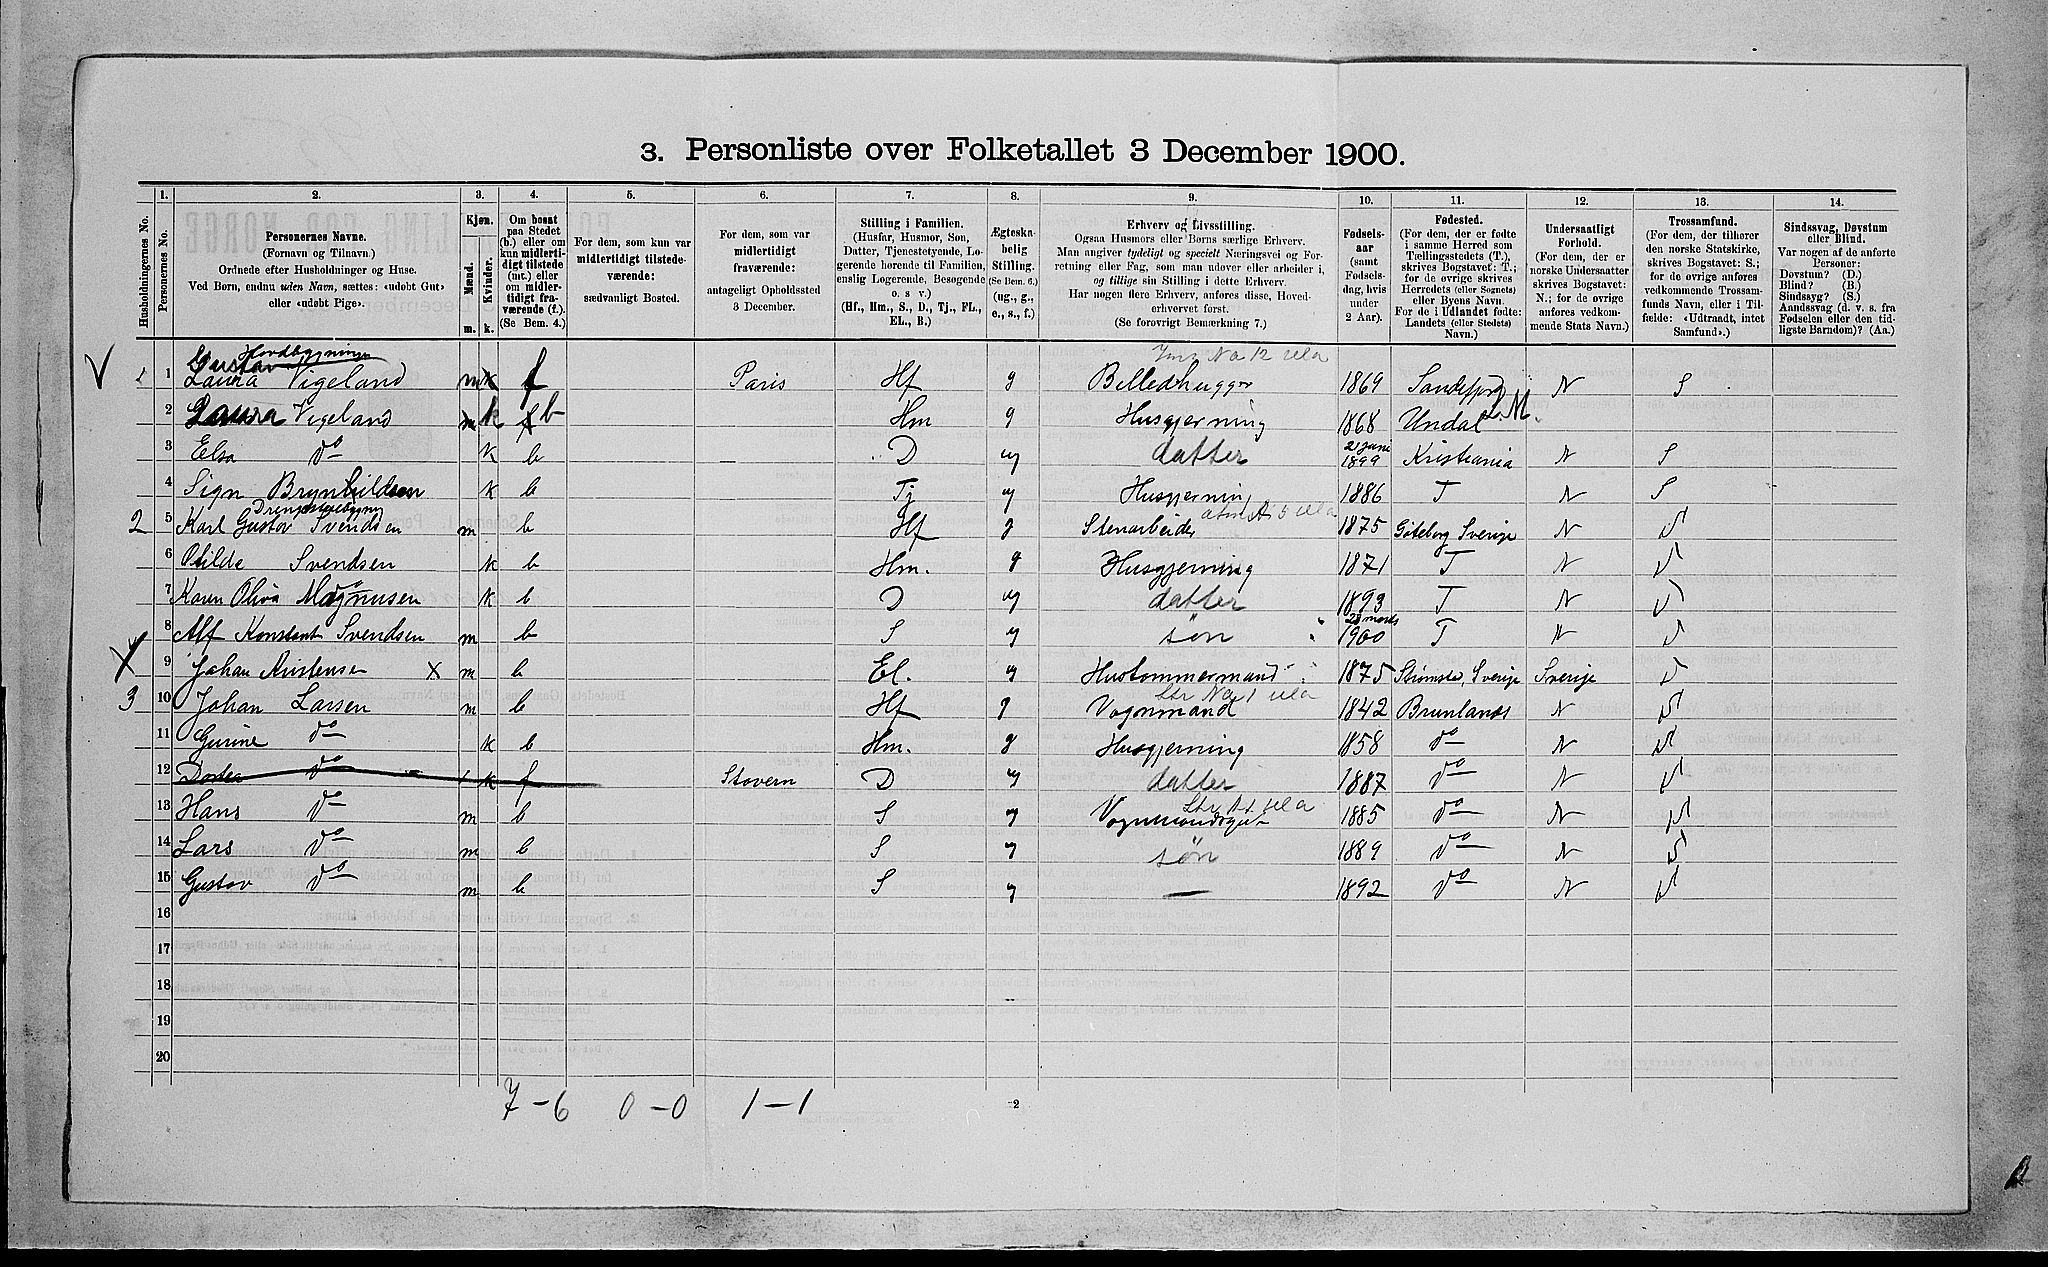 3. Personliste over Folketallet 3 December 1900.
Husholdningernes No.
1.
Personernes No.
2.
Personernes Navne.
(Fornavn og Tilnavn.)
Ordnede efter Husholdninger og Huse.
Ved Børn, endnu uden Navn, sættes: «udøbt Gut»
eller «udøbt Pige».
3.
Kjøn.
Mænd.
Kvinder.
m.
k.
4.
Om bosat
paa Stedet
(b.) eller om
kun midlerti-
digt tilstede
(mt.) eller
om midler-
tidigt fra-
værende (f.).
(Se Bem. 4.)
5.
For dem, som kun var
midlertidigt tilstede-
værende:
sædvanligt Bosted.
6.
For dem, som var
midlertidigt
fraværende:
antageligt Opholdssted
3 December.
7.
Stilling i Familien.
(Husfar, Husmor, Søn,
Datter, Tjenestetyende, Lo-
gerende hørende til Familien,
enslig Logerende, Besøgende
o. s. v.)
(Hf., Hm., S., D., Tj., FL.,
EL., B.)
8.
Ægteska-
belig
Stilling.
(Se Bem. 6.)
(ug., g.,
e., s., f.)
9.
Erhverv og Livsstilling.
Ogsaa Husmors eller Børns særlige Erhverv.
Man angiver tydeligt og specielt Næringsvei og For-
retning eller Fag, som man udøver eller arbeider i,
og tillige sin Stilling i dette Erhverv.
Har nogen flere Erhverv, anføres disse, Hoved-
erhvervet først.
(Se forøvrigt Bemærkning 7.)
10.
Fødsels-
aar
(samt
Fødsels-
dag, hvis
under
2 Aar).
11.
Fødested.
(For dem, der er fødte
i samme Herred som
Tællingsstedets (T.),
skrives Bogstavet: T.;
for de øvrige skrives
Herredets (eller Sognets)
eller Byens Navn.
For de i Udlandet fødte:
Landets (eller Stedets)
Navn.)
12.
Undersaatligt
Forhold.
(For dem, der er
norske Undersaatter
skrives Bogstavet:
N.; for de øvrige
anføres vedkom-
mende Stats Navn.)
13.
Trossamfund.
(For dem, der tilhører
den norske Statskirke,
skrives Bogstavet: S.;
for de øvrige anføres
vedkommende Trossam-
funds Navn, eller i Til-
fælde: «Udtraadt, intet
Samfund».)
14.
Sindssvag, Døvstum
eller Blind.
Var nogen af de anførte
Personer:
Døvstum? (D.)
Blind? (B.)
Sindssyg? (S.)
Aandssvag (d. v. s. fra
Fødselen eller den tid-
ligste Barndom)? (Aa.)
Hovdbygningen
1 Gustav Laura Vigeland m k f Paris Hf g Billedhugger 1869 Sandefjord N S
2 Laura Vigeland k b Hm g Husgjerning 1868 Undal
3 Elsa do k b D ug datter 21 juni 1899 Kristiania N S
4 Sign Brynhildsen k b Tj ug Husgjerning 1886 T N S
2 5 Karl Gustav Svendsen m b Hf g Stenarbeider 1875 Göteborg Sverije N S
6 Otilde Svendsen k b Hm. g Husgjerning 1871 T N S
7 Karen Oliva Magnusen k b D ug datter 1893 T N S
8 Alf Konstant Svendsen m b S ug søn 1900 T N S
9 Johan Kristensen X m b El. ug Hustommermand 1875 Strømsta, Sverije Sverije S
3 10 Johan Larsen m b Hf g Vognmand 1842 Brunlanæs N S
11 Gurine do k b Hm. g Husgjerning 1858 do N S
12 Dortea do k f Stavern D ug datter 1887 do N S
13 Hans do m b S ug Vognmandsgut 1885 do N S
14 Lars do m b S ug søn 1889 do N S
15 Gustav do m b S ug — 1892 do N S
16
17
18
19
20
7 - 6 0 - 0 1 - 1
2